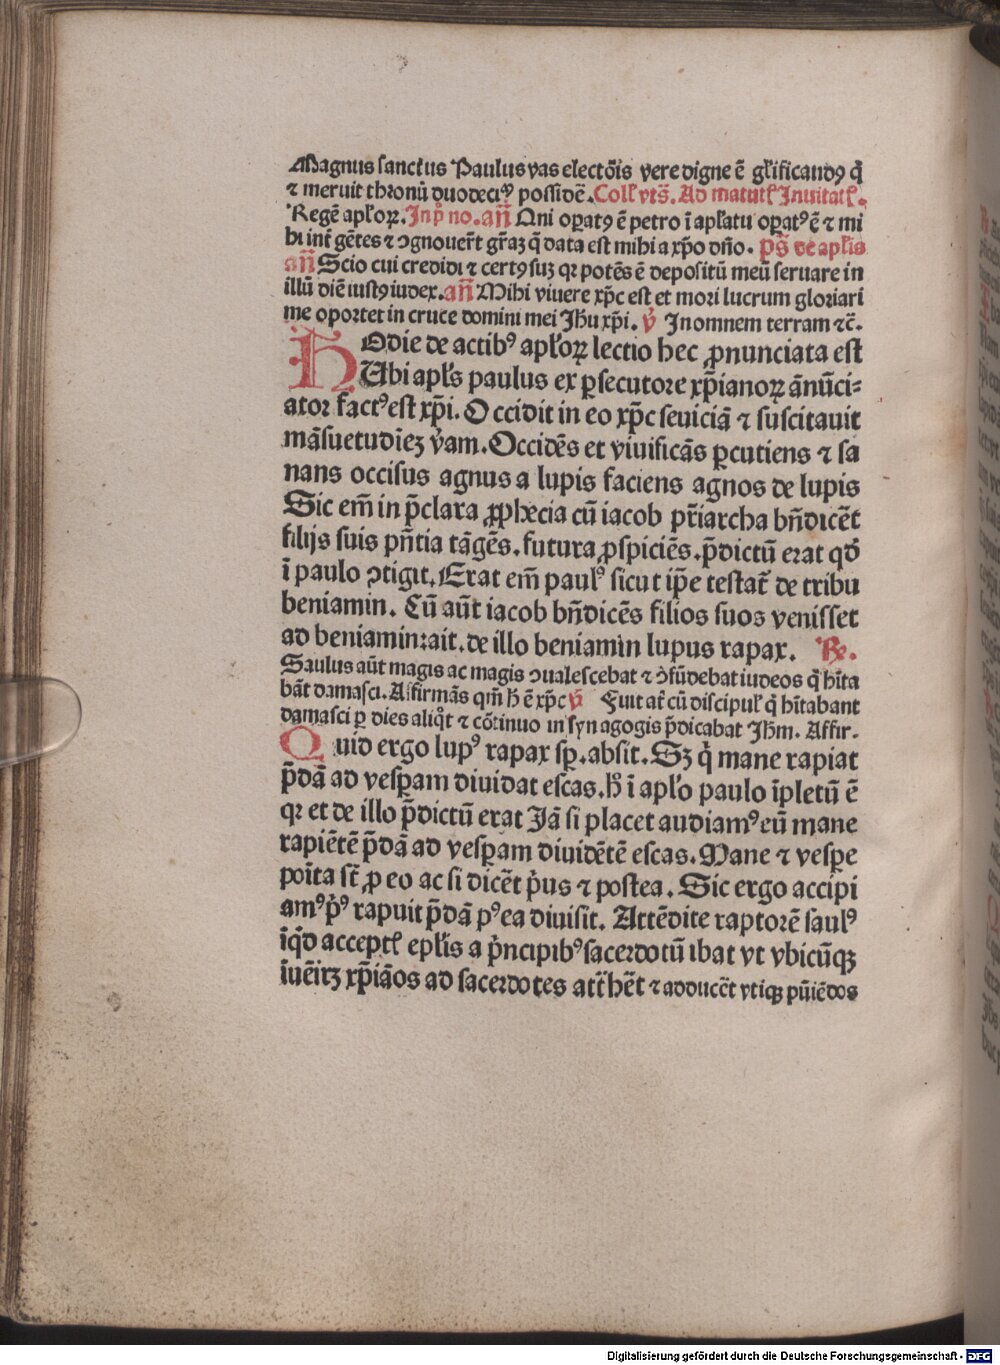 Magnus sanctus Paulus vas electōis vere digne ē gl̄ificandꝰ q̇
⁊ meruit thronū duodeciꝰ possidē. Coll̄ vts̄. Ad matutꝭ Inuitatꝭ.
Regē apl̄oꝝ. In pͥ no. an̄ Qui oꝑatꝰ ē petro ī apl̄atu oꝑatꝰ ē ⁊ mi
hi int̄ gētes ⁊ ↄgnouer̄t gr̄aꝫ q̄ data est mihi a xp̄o dn̄o. ps̄ de apl̄is
an̄ Scio cui credidi ⁊ certꝰ suꝫ qꝛ potēs ē depositū meū seruare in
illū diē iustꝰ iudex. an̄ Mihi viuere xp̄c est et mori lucrum gloriari
me oportet in cruce domini mei Jh̄u xp̄i. ℣ In omnem terram ⁊c̄.
HOdie de actibꝰ apl̄oꝝ lectio hec ꝓnunciata est
Ubi apl̄s paulus ex ꝑsecutore xp̄ianoꝝ ānūci⸗
ator factꝰ est xp̄i. Occidit in eo xp̄c seuiciā ⁊ suscitauit
māsuetudīeꝫ v̄am. Occidēs et viuificās ꝑcutiens ⁊ sa
nans occisus agnus a lupis faciens agnos de lupis
Sic em̄ in p̄clara ꝓphecia cū iacob pr̄iarcha bn̄dicēt
filijs suis pn̄tia tāgēs. futura ꝓspiciēs. p̄dictū erat qd̄
ī paulo ↄtigit. Erat em̄ paulꝰ sicut ip̄e testat̄ de tribu
beniamin. Cū aūt iacob bn̄dicēs filios suos venisset
ad beniamin: ait. de illo beniamin lupus rapax. ℞.
Saulus aūt magis ac magis ↄualescebat ⁊ ↄfūdebat iudeos q̇ hīta
bāt damasci. Affirmās qm̄ h̄ ē xp̄c ℣ Fuit at̄ cū discipul̄ q̇ hītabant
damasci ꝑ dies aliq̊t ⁊ cōtinuo in synagogis p̄dicabat Jh̄m. Affir.
Quid ergo lupꝰ rapax sꝑ. absit. Sꝫ q̇ mane rapiat
p̄dā ad vesꝑam diuidat escas. h̄ ī apl̄o paulo īpletū ē
qꝛ et de illo p̄dictū erat Jā si placet audiamꝰ eū mane
rapiētē p̄dā ad vesꝑam diuidētē escas. Mane ⁊ vespe
poīta st̄ ꝓ eo ac si dicēt pͥus ⁊ postea. Sic ergo accipi
amꝰ pͥꝰ rapuit p̄dā pꝰea diuisit. Attēdite raptorē saulꝰ
īqͥd acceptꝭ epl̄is a pͥncipibꝰ sacerdotū ibat vt vbicūqꝫ
īuēirꝫ xp̄iāos ad sacerdotes att̄hēt ⁊ adducēt vtiqꝫ pūiēdos
Digitalisierung gefördert durch die Deutsche Forschungsgemeinschaft - DFG